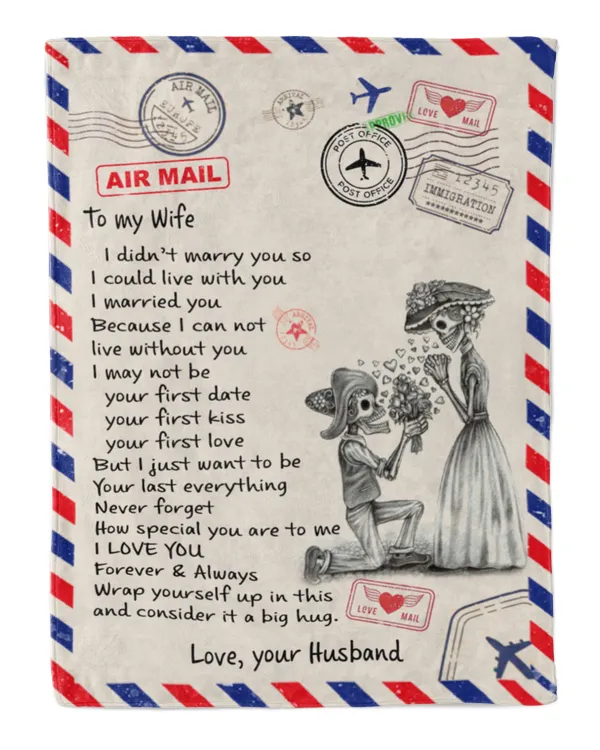 AIR MAIL
EUROPE
ARRIVAL
LOVE MAIL
APPROV
POST OFFICE
POST OFFICE
12345
IMMIGRATION
************
AIR MAIL
To my Wife
I didn't marry you so
I could live with you
I married you
Because I can not
live without you
I may not be
your first date
your first kiss
your first love
But I just want to be
Your last everything
Never forget
How special you are to me
I LOVE YOU
Forever & Always
Wrap yourself up in this
and consider it a big hug.
ARRIVAL
LOVE MAIL
Love, your Husband